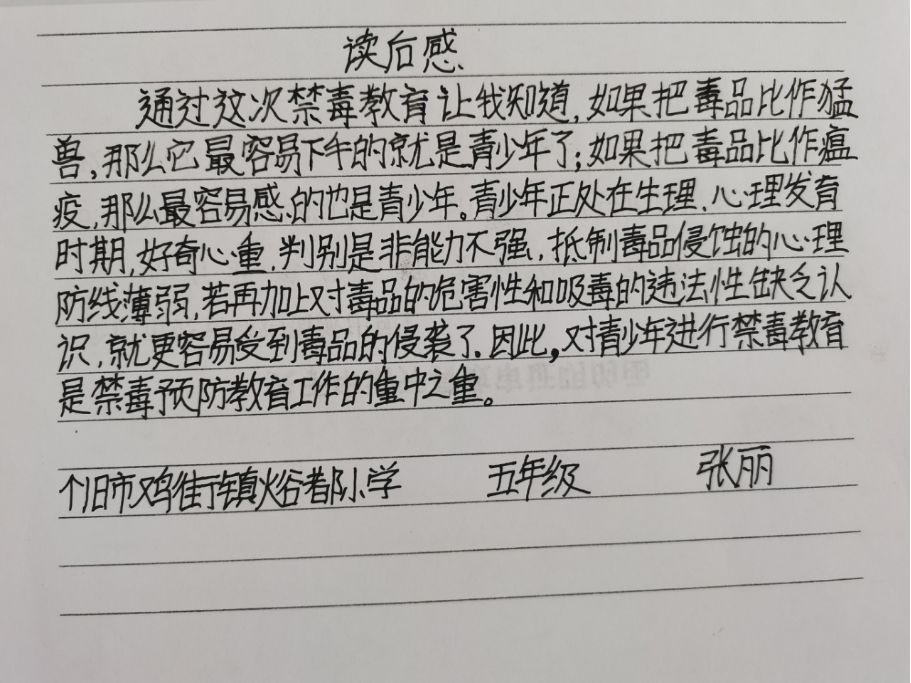 读后感
通过这次禁毒教育让我知道,如果把毒品比作猛
兽,那么它最容易下手的就是青少年了;如果把毒品比作瘟
疫,那么最容易感的也是青少年。青少年正处在生理、心理发育
时期,好奇心重,判别是非能力不强,抵制毒品侵蚀的心理
防线薄弱,若再加上对毒品的危害性和吸毒的违法性缺乏认
识,就更容易受到毒品的侵袭了.因此,对青少年进行禁毒教育
是禁毒预防教育工作的重中之重。
个旧市鸡街镇峪都小学 五年级 张丽